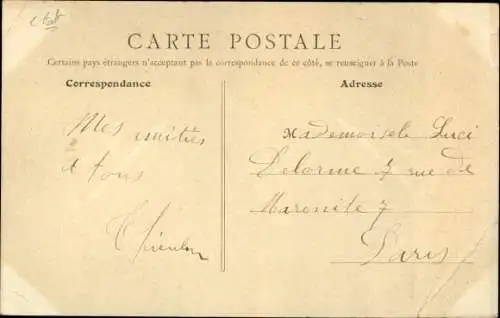 CARTE POSTALE
Certains pays étrangers n'acceptant pas la correspondance de ce côté, se renseigner à la Poste
Correspondance
Adresse
Mes amitiés
à tous
Mademoisele Luci
Delorme 7 rue de
Maronite 7
Paris